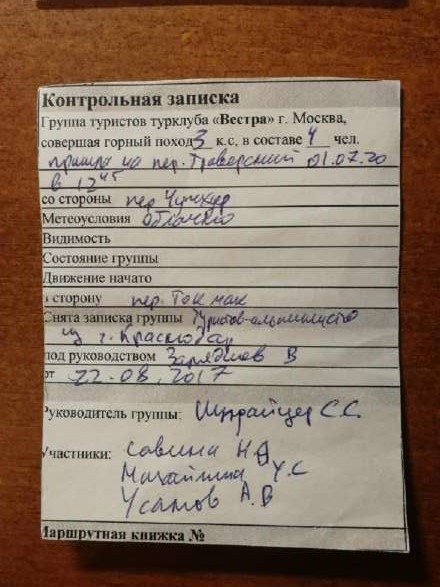 Контрольная записка
Группа туристов турклуба «Вестра» г. Москва,
совершая горный поход 3 к.с, в составе 4 чел.
пришла на пер. Траверсный 01.07.20
в 12 45
со стороны пер
Метеоусловия облачно
Видимость
Состояние группы
Движение начато
сторону пер. Ток мак
Снята записка группы туристов-альпинистов
из г. Краснодар
под руководством В
от 22.08.2017
Руководитель группы: С.С.
Участники: Савина Н.А
У.С
Усатов А.В
Маршрутная книжка №